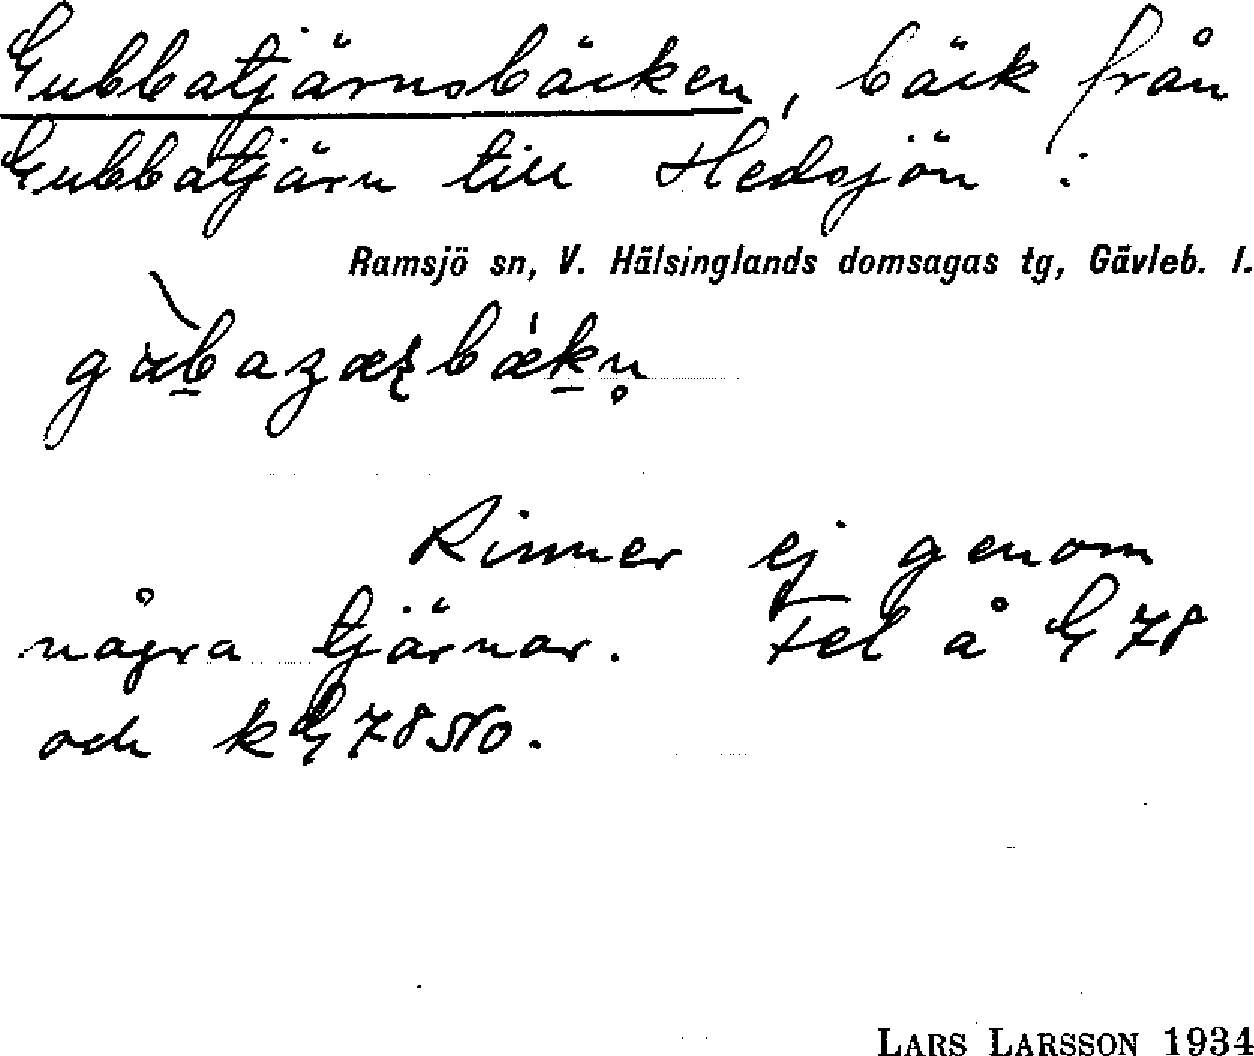 Gubbatjärnsbäcken, bäck från
Gubbatjärn till Hedsjön :
Ramsjö sn, V. Hälsinglands domsagas tg, Gävleb. l.
Rinner ej genom
några tjärnar. Fel å G 78
och k G 78 NO.
LARS LARSSON 1934